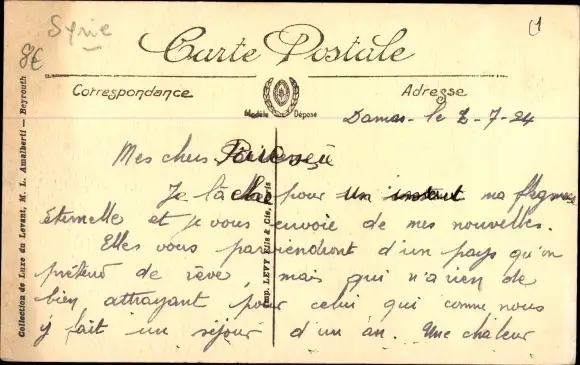 Syrie
8€
Carte Postale
Correspondance
Adresse
Modèle Déposé
Damas - le 2-7-24
Mes chers
Je lâche pour un instant ma flegme
éternelle et je vous envoie de mes nouvelles.
Elles vous parviendront d'un pays qu'on
prétend de rêve, mais qui n'a rien de
bien attrayant pour celui qui comme nous
y fait un séjour d'un an. Une chaleur
Imp. LEVY Fils & Cie, Paris
Collection de Luxe du Levant, M. L. Amalberti — Beyrouth